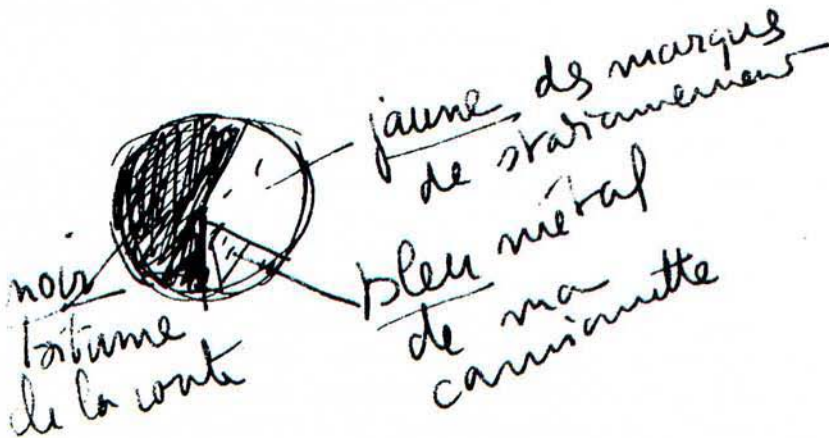 jaune des marques
de stationnement
bleu métal
de ma
camionnette
noir
bitume
de la route